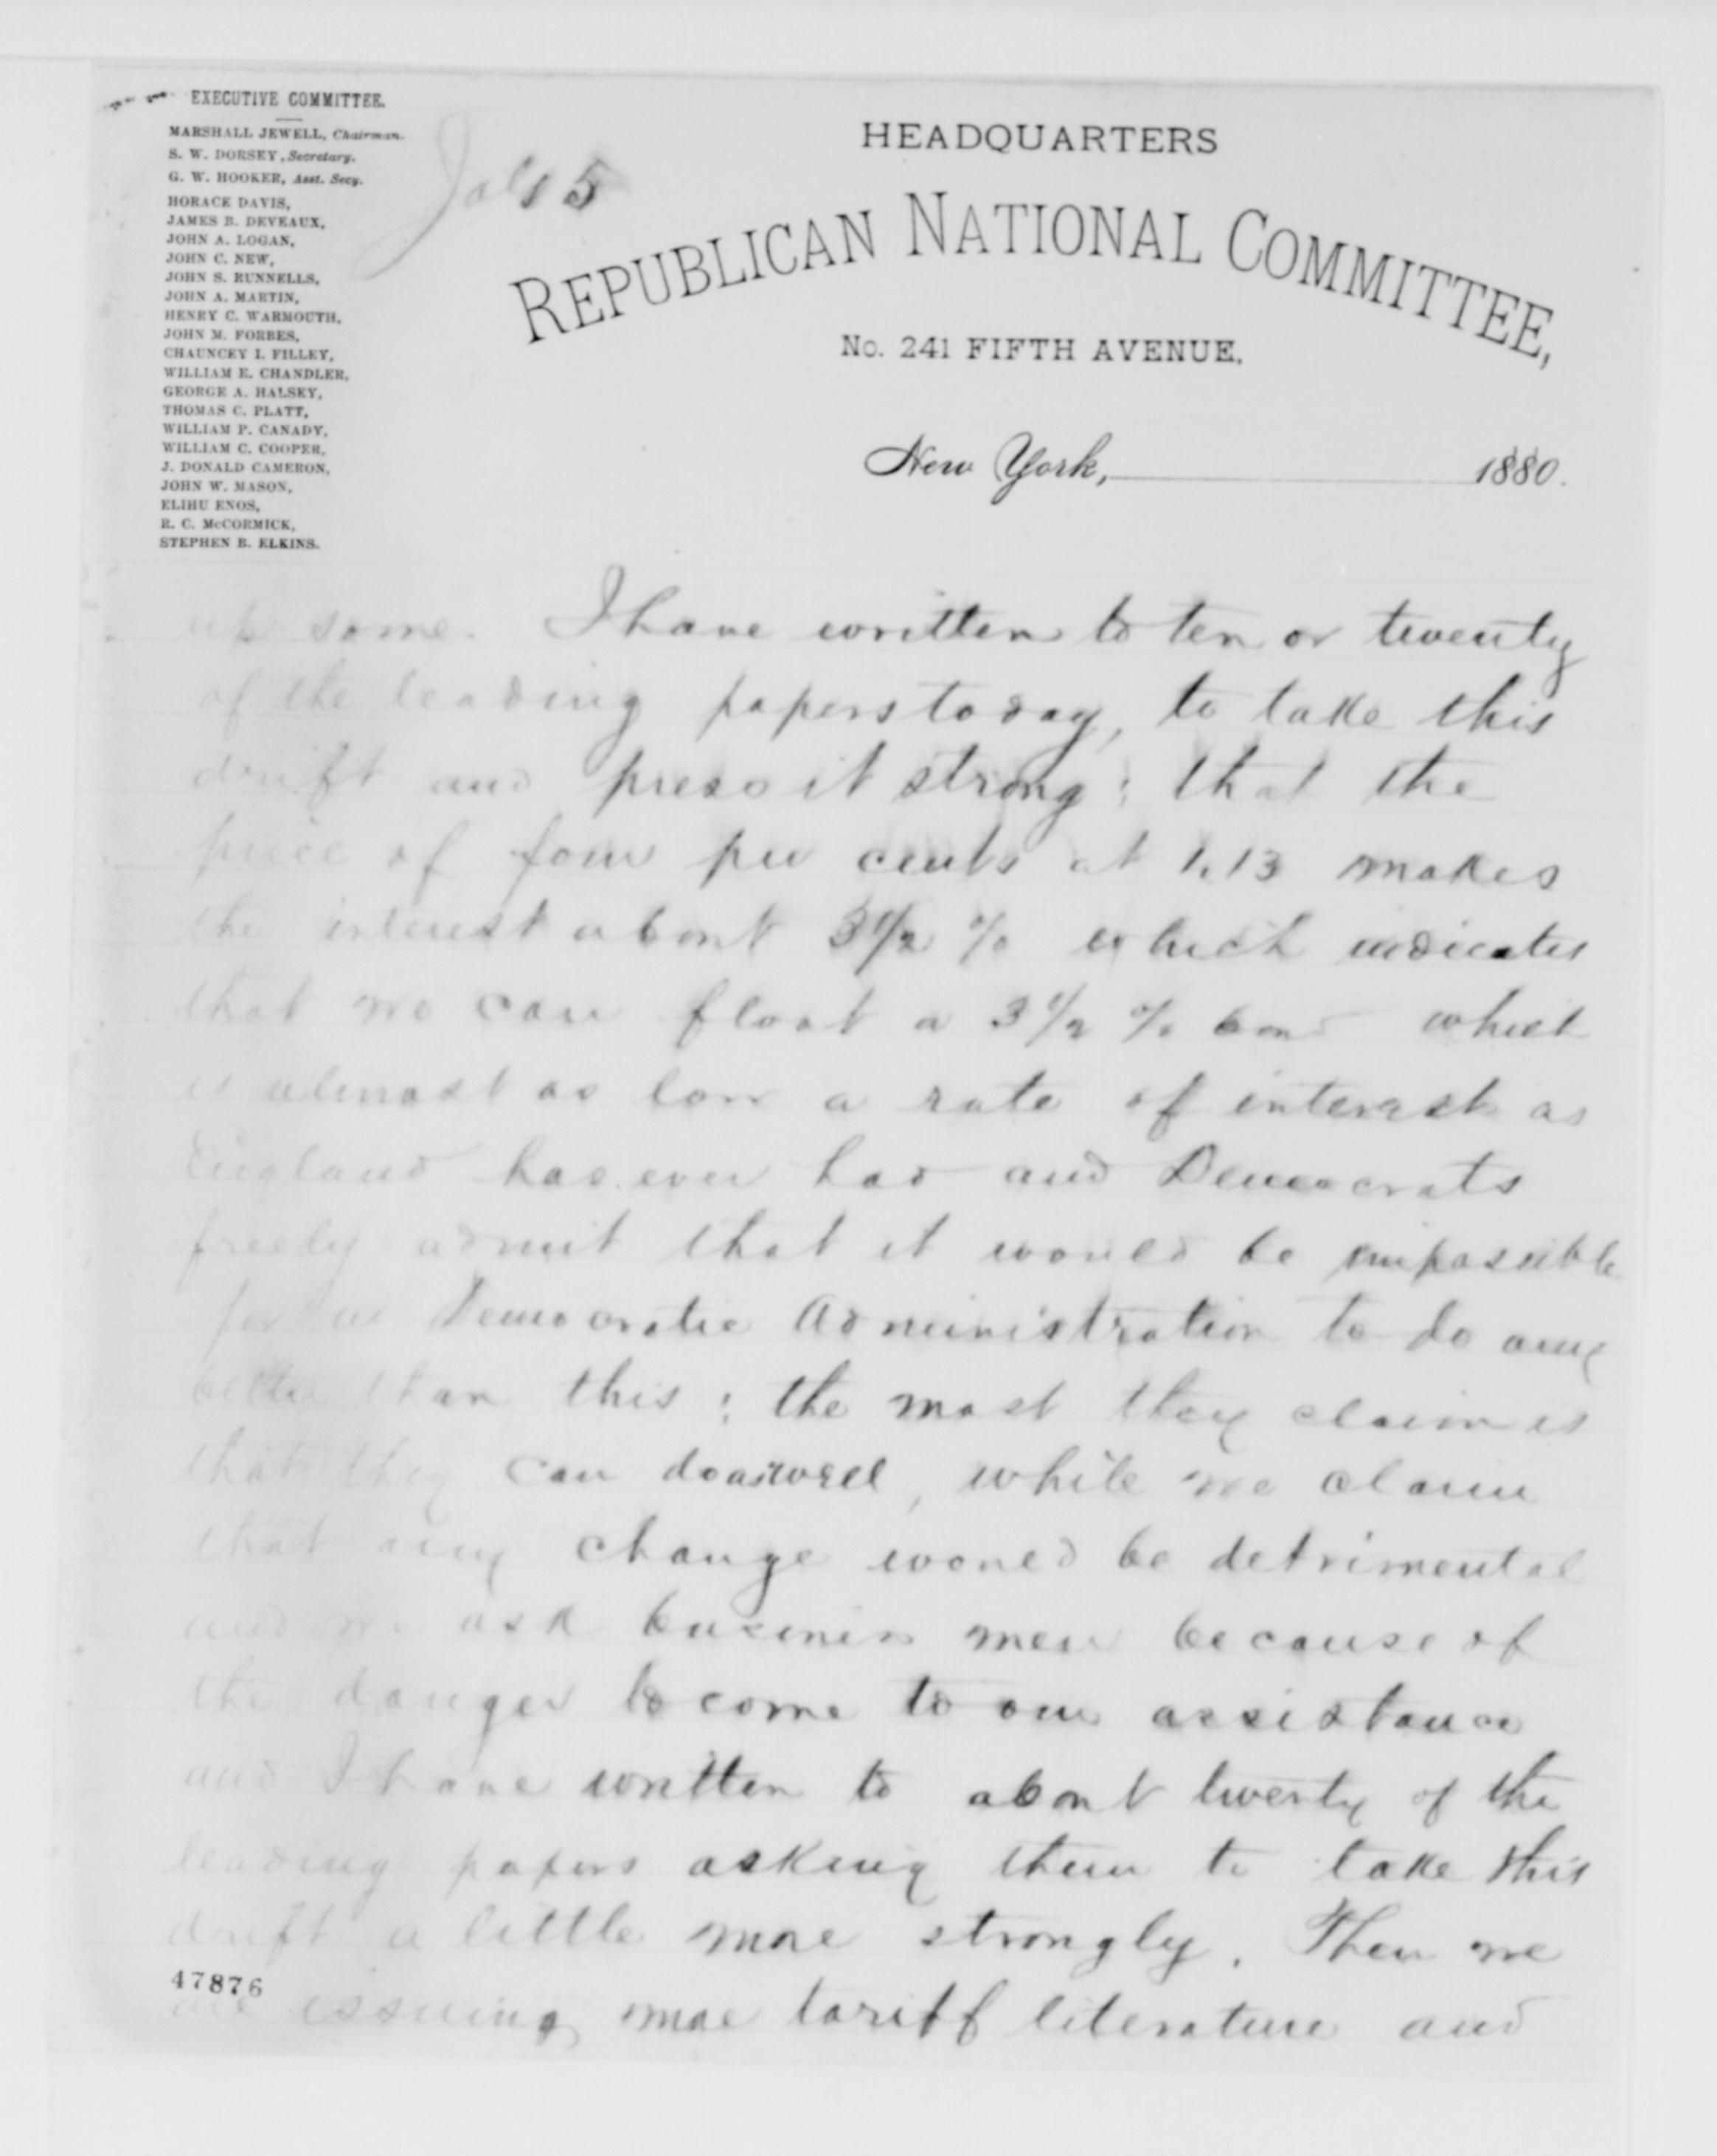 EXECUTIVE COMMITTEE.
MARSHALL JEWELL, Chairman.
S. W. DORSEY, Secretary.
G. W. HOOKER, Asst. Secy.
HORACE DAVIS,
JAMES B. DEVEAUX,
JOHN A. LOGAN,
JOHN C. NEW,
JOHN S. RUNNELLS,
JOHN A. MARTIN,
HENRY C. WARMOUTH,
JOHN M. FORBES,
CHAUNCEY I. FILLEY,
WILLIAM E. CHANDLER,
GEORGE A. HALSEY,
THOMAS C. PLATT,
WILLIAM P. CANADY,
WILLIAM C. COOPER,
J. DONALD CAMERON,
JOHN W. MASON,
ELIHU ENOS,
R. C. McCORMICK,
STEPHEN B. ELKINS.
5
HEADQUARTERS
REPUBLICAN NATIONAL COMMITTEE,
No. 241 FIFTH AVENUE,
New York, 1880.
up some. I have written to ten or twenty
of the leading papers today, to take this
drift and press it strong; that the
price of four per cents at 1.13 makes
the interest about 3 1/2 % which indicates
that we can float a 3 1/2 % bond which
is almost as low a rate of interest as
England has ever had and Democrats
freely admit that it would be impossible
for a Democratic Administration to do any
better than this; the most they claim is
that they can do as well, while we claim
that any change would be detrimental
and we ask business men because of
the danger to come to our assistance
and I have written to about twenty of the
leading papers asking them to take this
drift a little more strongly. Then we
are issuing more tariff literature and
47876